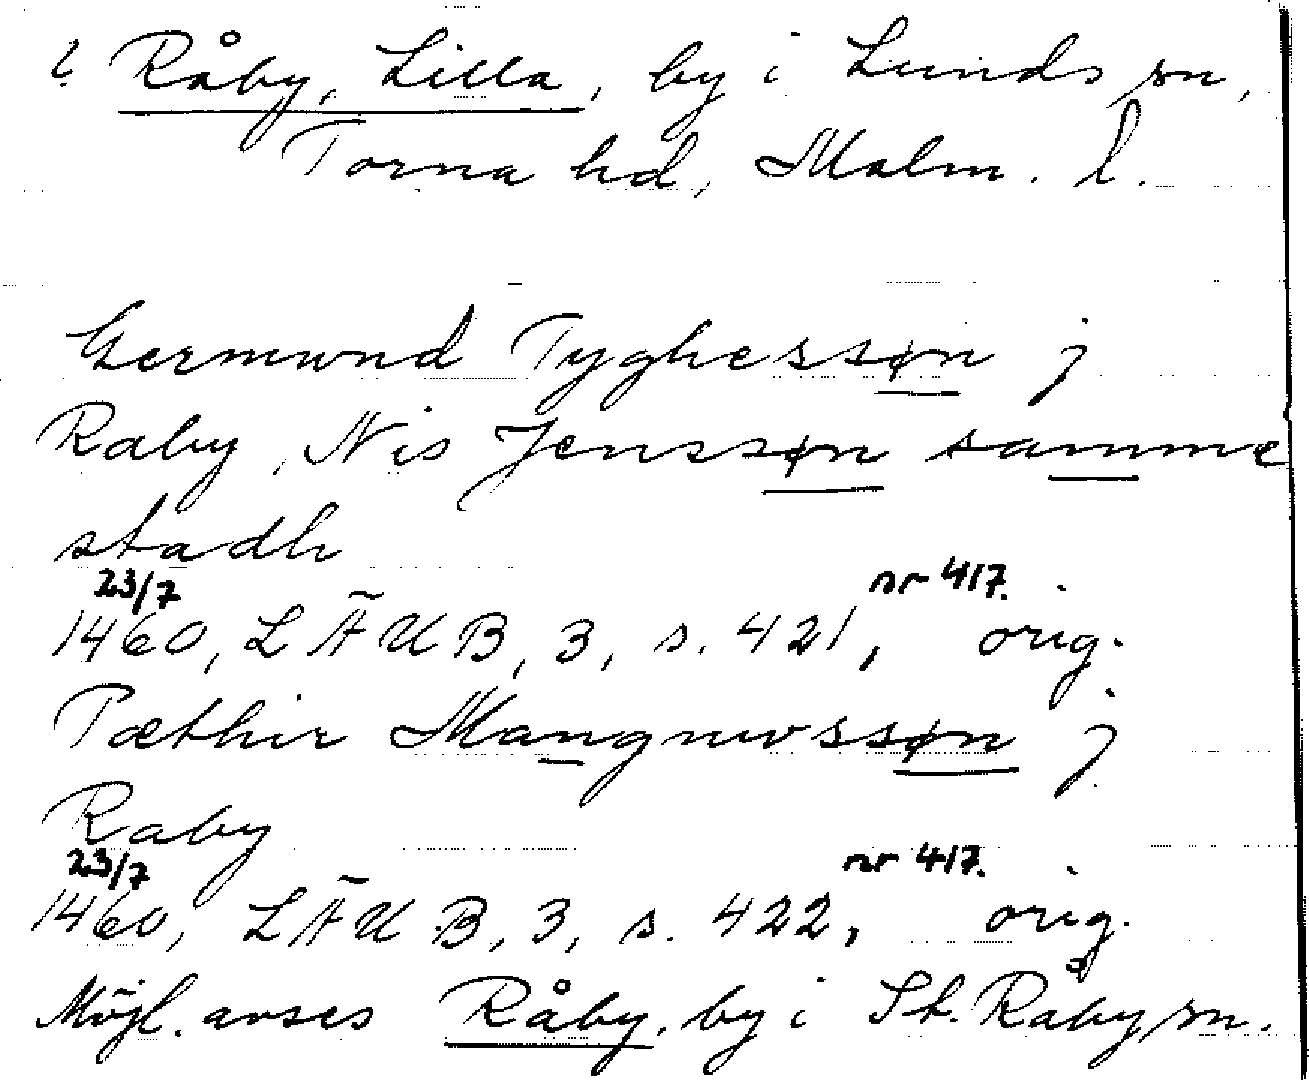 ? Råby, Lilla, by i Lunds sn,
Torna hd, Malm. l.
Germwnd Tyghessøn j
Raby, Nis Jenssøn samme
stadh
23/7 nr 417.
1460, LÄUB, 3, s. 421, orig.
Pæthir Mangnwssøn j
Raby
23/7 nr 417.
1460, LÄUB, 3, s. 422, orig.
Möjl. avses Råby, by i St. Råby sn.